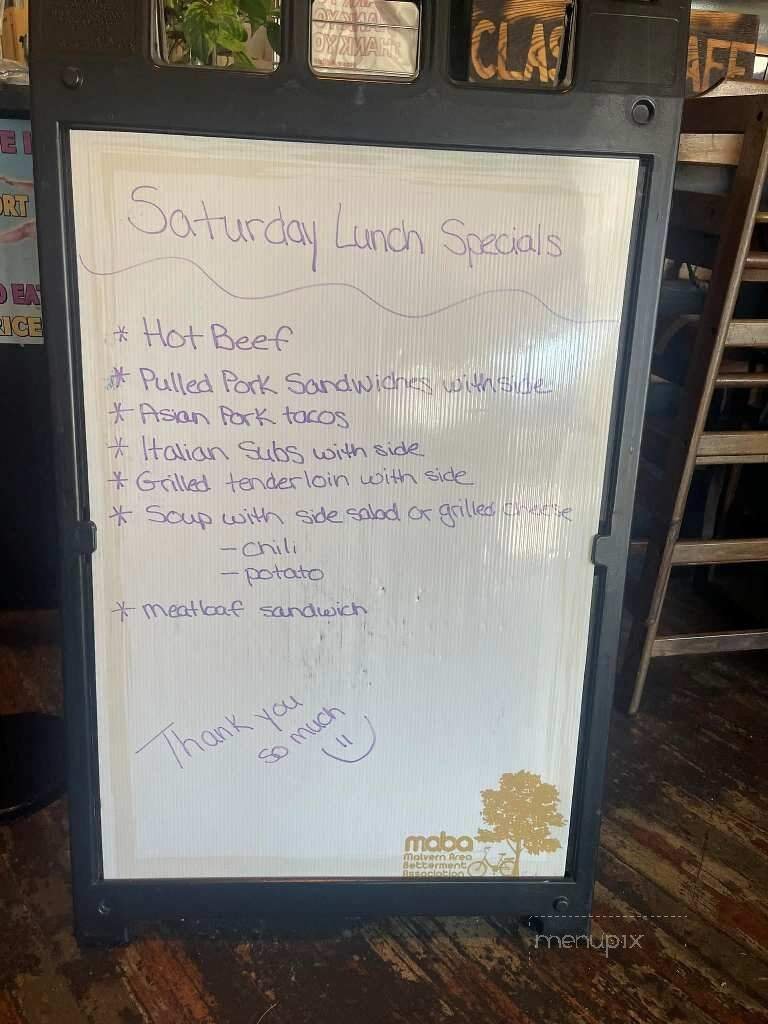 CLAS
AFE
E
ORT
O EAT
RICE
Saturday Lunch Specials
* Hot Beef
* Pulled Pork Sandwiches with side
* Asian Pork tacos
* Italian Subs with side
* Grilled tenderloin with side
* Soup with side salad or grilled cheese
- chili
- potato
* meatloaf sandwich
Thank you
so much
maba
Malvern Area
Betterment
Association
menupix